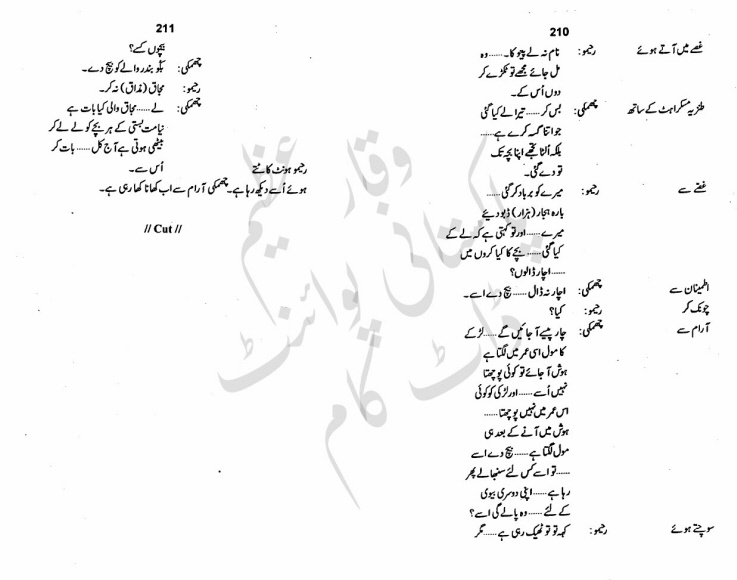 210
غصے میں آتے ہوئے رحیمو: نام نہ لے پیو کا۔......وہ
مل جائے مجھے تو ٹکڑے کر
دوں اُس کے۔
طنزیہ مسکراہٹ کے ساتھ چھمکی: بس کر......تیرا لے کیا گئی
جو اتنا گسہ کرے ہے......
بلکہ اُلٹا تجھے اپنا بچہ تک
تو دے گئی۔
غصّے سے رحیمو: میرے کو برباد کر گئی......
بارہ ہجار (ہزار) ڈبو دیئے
میرے......اور تو کہتی ہے کہ لے کے
کیا گئی......بچے کا کیا کروں میں
......اچار ڈالوں؟
اطمینان سے چھمکی: اچار نہ ڈال......بیچ دے اسے۔
چونک کر رحیمو: کیا؟
آرام سے چھمکی: چار پیسے آ جائیں گے......لڑکے
کا مول اسی عمر میں لگتا ہے
ہوش آ جائے تو کوئی پوچھتا
نہیں اُسے......اور لڑکی کو کوئی
اس عمر میں نہیں پوچھتا......
ہوش میں آنے کے بعد ہی
مول لگتا ہے......بیچ دے اسے
......تو اسے کس لئے سنبھالے پھر
رہا ہے......اپنی دوسری بیوی
کے لئے......وہ پالے گی اسے؟
سوچتے ہوئے رحیمو: کہہ تو تو ٹھیک رہی ہے......مگر
211
بیچوں کسے؟
چھمکی: بلّو بندر والے کو بیچ دے۔
رحیمو: مجاق (مذاق) نہ کر۔
چھمکی: لے......مجاق والی کیا بات ہے
نیامت بستی کے ہر بچے کو لے لے کر
بیٹھی ہوتی ہے آج کل......بات کر
اُس سے۔
رحیمو ہونٹ کاٹتے
ہوئے اُسے دیکھ رہا ہے۔ چھمکی آرام سے اب کھانا کھا رہی ہے۔
// Cut //
وقار عظیم
پاکستانی پوائنٹ
ڈاٹ کام